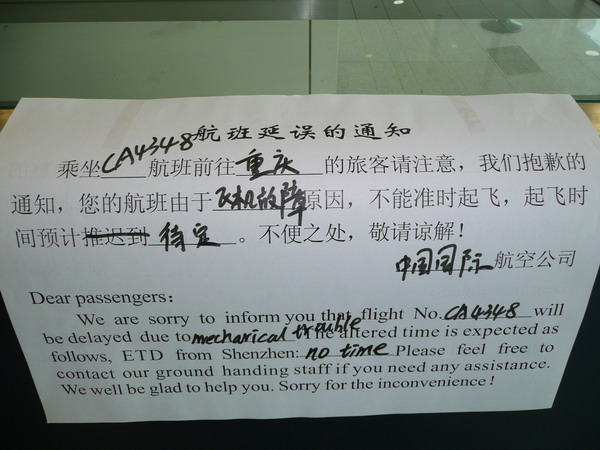 航班延误的通知
乘坐CA4348航班前往重庆的旅客请注意，我们抱歉的
通知，您的航班由于飞机故障原因，不能准时起飞，起飞时
间预计推迟到待定。不便之处，敬请谅解！
中国国际航空公司
Dear passengers:
We are sorry to inform you that flight No. CA4348 will
be delayed due to mecharical trouble The altered time is expected as
follows, ETD from Shenzhen: no time Please feel free to
contact our ground handing staff if you need any assistance.
We well be glad to help you. Sorry for the inconvenience!